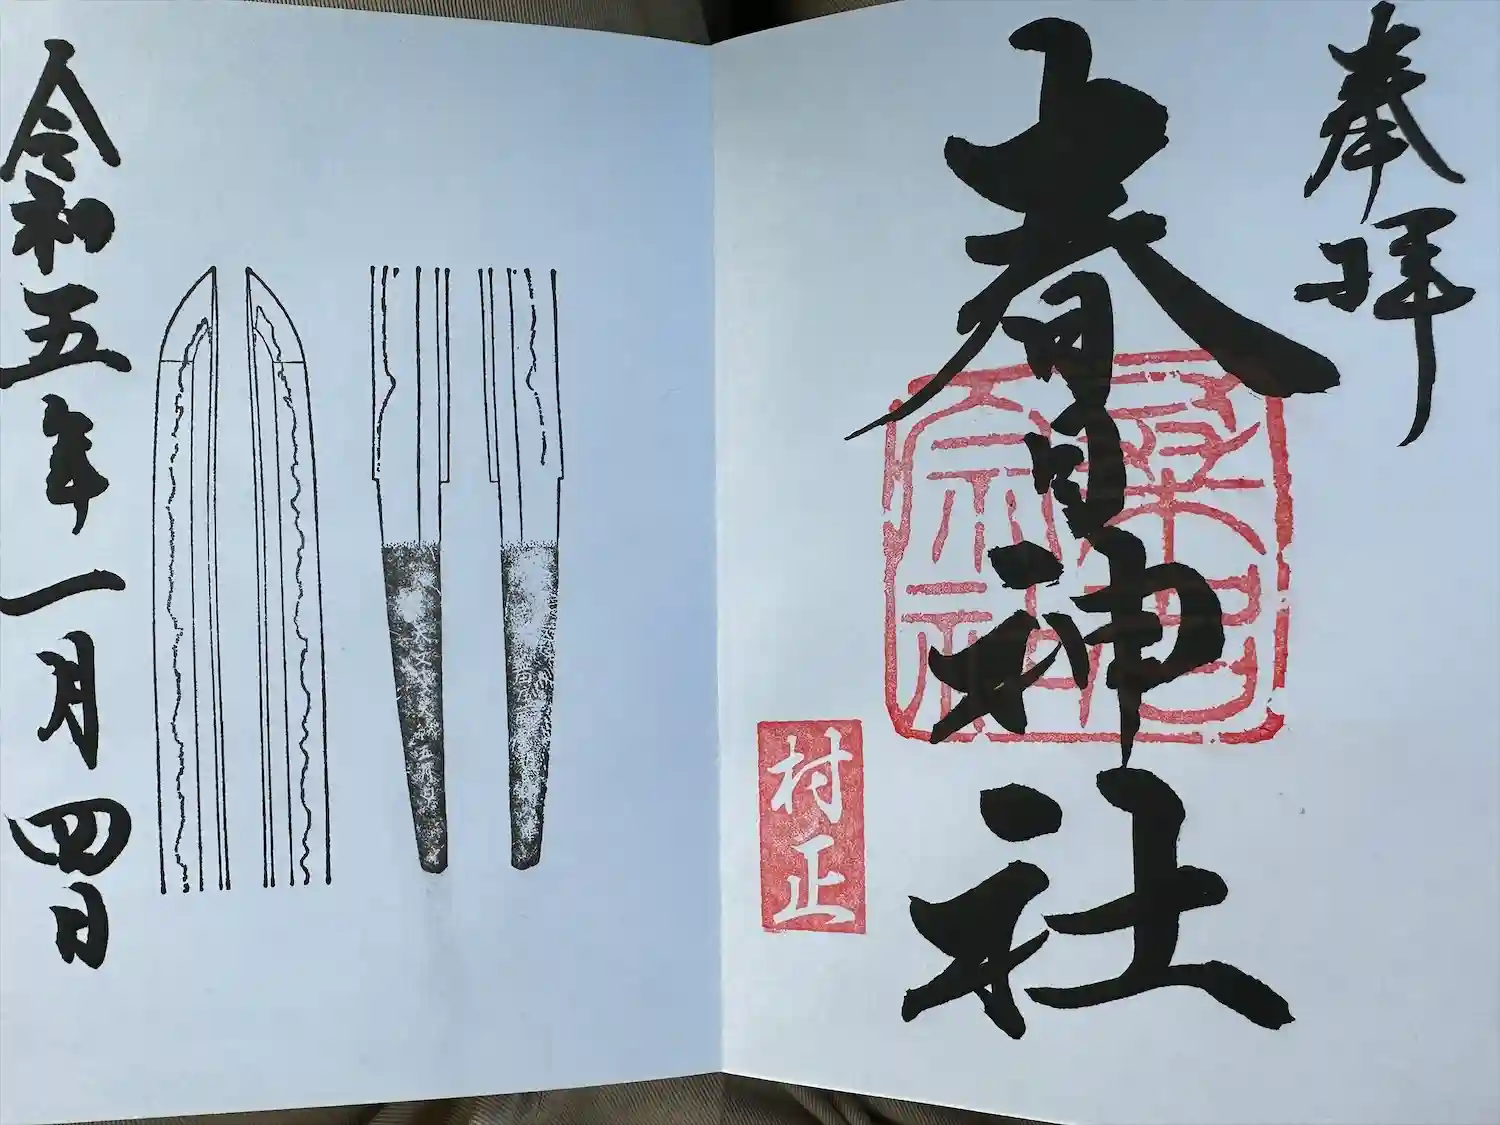 奉拝
春日神社
桑名宗社
村正
令和五年一月四日